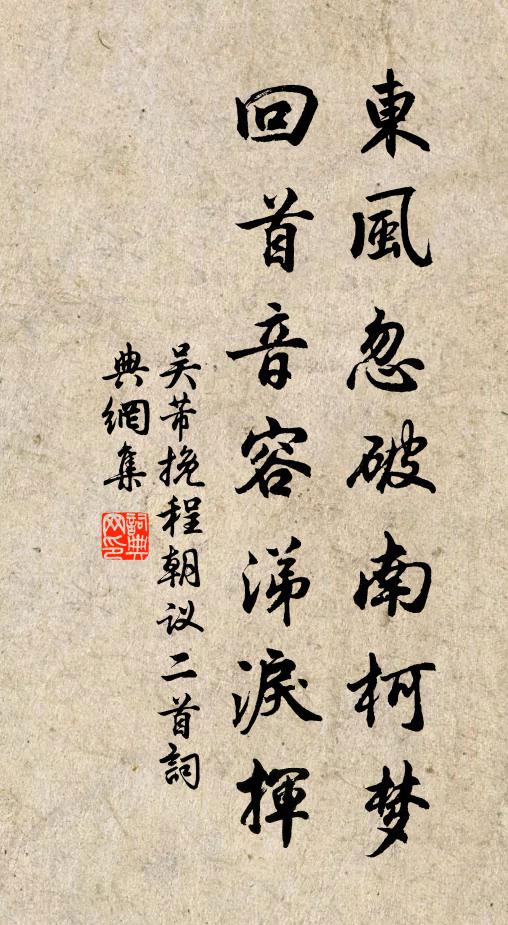 東風忽破南柯梦
回首音容涕淚揮
吴芾挽程朝议二首詞
典網集
詞典网印